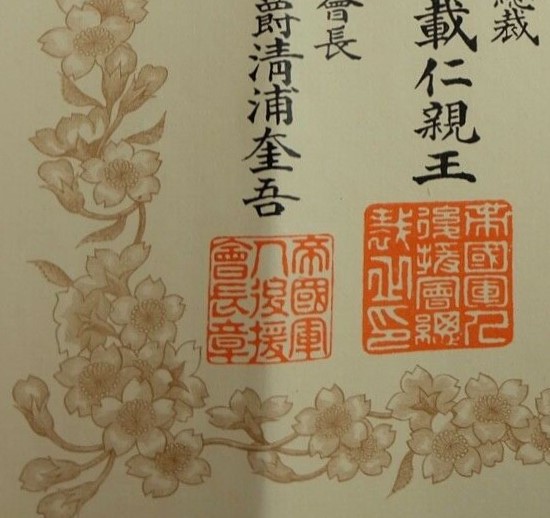 總裁
載仁親王
會長
爵清浦奎吾
帝國軍人
後援會總
裁之印
帝國軍
人後援
會長章